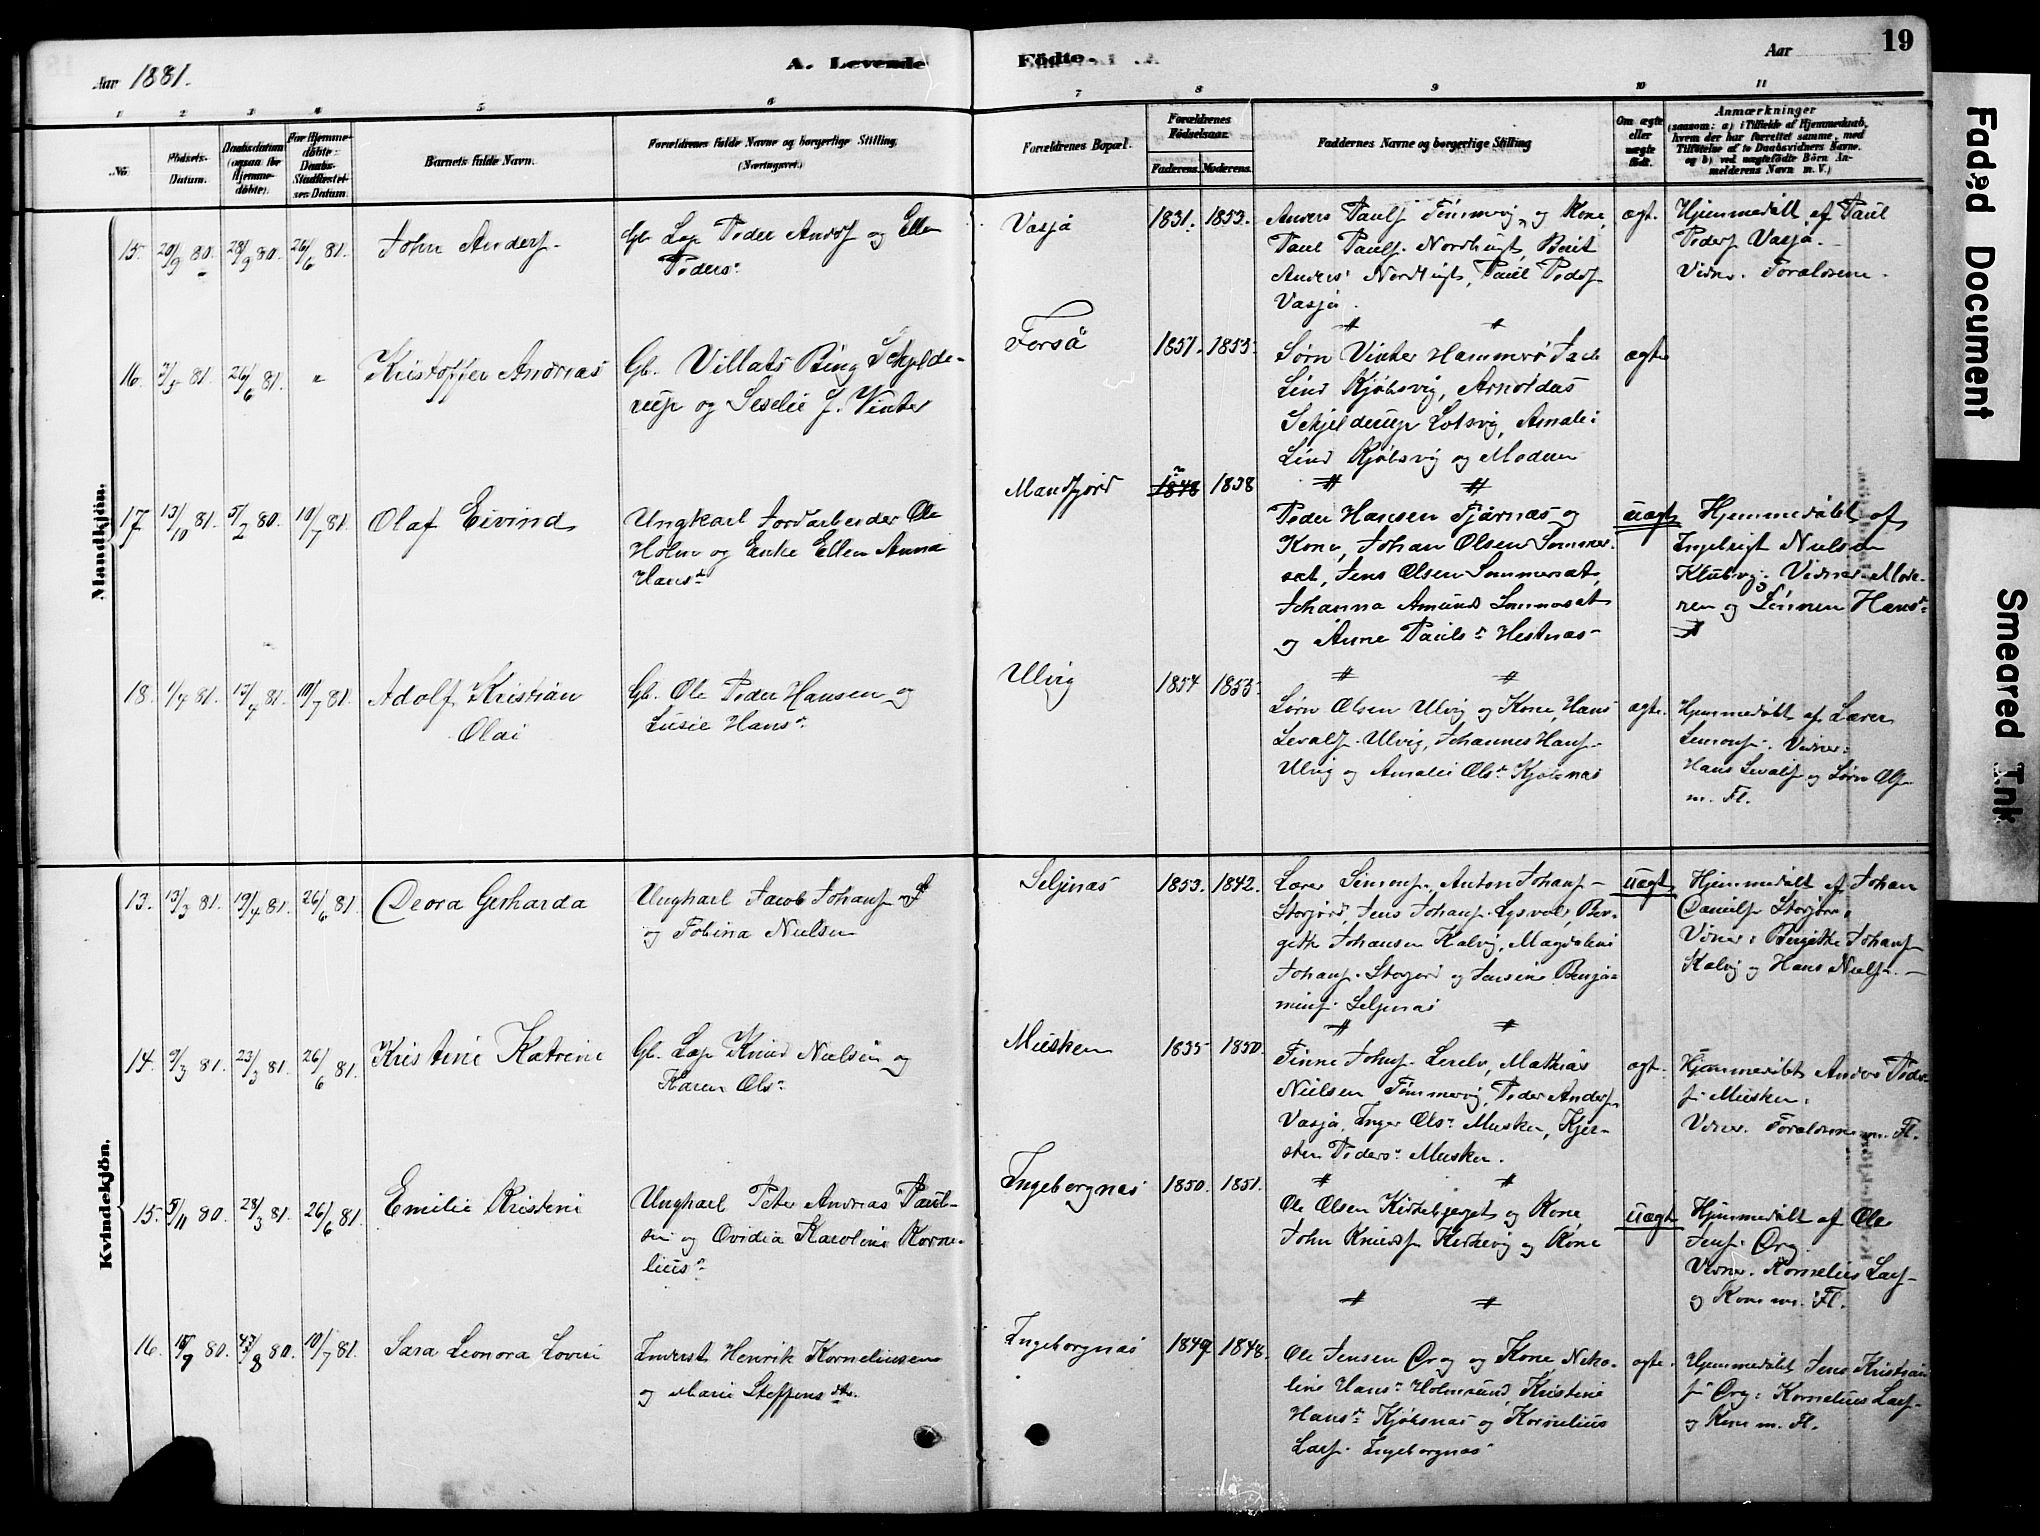 Aar 1881.
A. Levende
Födte.
Aar
19
1 2 3 4 5 6
7 8 9 10 11
No.
Födsels-Datum.
Daabsdatum (ogsaa for Hjemmedöbte).
For Hjemmedöbte: Daabs-Stadfæstelses Datum.
Barnets fulde Navn.
Forældrenes fulde Navne og borgerlige Stilling,
(Næringsvei.)
Forældrenes Bopæl.
Forældrenes Födselsaar.
Faderens. Moderens.
Faddernes Navne og borgerlige Stilling
Om ægte eller uægte födt.
Anmærkninger
(saasom: a) i Tilfælde af Hjemmedaab, hvem der har forrettet samme, med Tilföielse af to Daabsvidners Navne. og b) ved uægtefödte Börn Anmelderens Navn m. V.)
Mandkjön.
15. 20/9 80. 28/9 80. 26/6 81.
John Anders.
Gb. Lap Peder Andss og Ellen
Peders.
Vasja
1831. 1853.
Anders Pauls. Tømmervig og Kone,
Paul Pauls. Nordbugt, Berit
Anders Nordbugt, Paul Peders
Vasja.
ægt.
Hjemmedøbt af Paul
Peders Vasja.
Vidner. Forældrene.
16. 26/6 81. "
Kristoffer Andreas
Gb. Villats Bing Schjelde-
rup og Seselie J. Vinter
Forså
1851. 1855.
Sørn Vinter Hammerø
Lind Kjøbsvig, Arnoldus
Schjelderup Lotsvig, Amalie
Lind Kjøbsvig og Moderen
ægte
17. 13/10 81. 5/2 80. 10/7 81.
Olaf Eivind
Ungkarl Jordarbeider Ole
Holm og Enke Ellen Anna
Hansd
Mandfjord
1848 1838
Peder Hansen Fjærnæs og
Kone, Johan Olsen Sommer-
sæt, Jens Olsen Sommersæt,
Johanna Amunds Sommersæt
og Anne Pauls. Hestnæs
uægt
Hjemmedøbt af
Ingebrigt Nielsen
Klubvig. Vidner. Mode-
ren og Hans
18. 1/4 81. 13/4 81. 10/7 81.
Adolf Kristian
Olai
Gb. Ole Peder Hansen og
Lusie Hans.
Ulvig
1854 1853.
Sørn Olsen Ulvig og Kone, Hans
Sevals. Ulvig, Johannes Hans.
Ulvig og Amalie Ols. Kjøbsnæs
ægte.
Hjemmedøbt af Lærer
Simons. Vidner:
Hans Sevals og Sørn Ols.
m. Fl.
Kvindekjön.
13. 13/3 81. 19/4 81. 26/6 81.
Deora Gerharda
Ungkarl Jacob Johans
og Tobina Nielsen
Seljenæs
1853. 1842.
Lærer Simons., Anton Johans
Storjord, Jens Johans. Lysvold, Ber-
gitte Johansen Kalvig, Magdalene
Johans. Storjord og Jensine Benja-
mins. Seljenæs
uægt
Hjemmedøbt af Johan
Daniels Storjord.
Vidner: Bergitte Johans
Kalvig og Hans Niels.
14. 9/3 81. 23/3 81. 26/6 81.
Kristine Katrine
Gb. Lap Knud Nielsen og
Karen Ols.
Musken
1835 1850.
Finne Johns. Mathias
Nielsen Tømmervig, Peder Anders.
Vasja, Inger Ols. Musken, Kjer-
sten Peders. Musken.
ægt.
Hjemmedøbt Anders Peder-
s. Musken.
Vidner. Forældrene m. Fl.
15. 5/11 80. 28/3 81. 26/6 81.
Emilie Kristine
Ungkarl Peter Andreas Paul-
sen og Ovidia Karoline Korne-
lius.
Ingeborgnæs
1850. 1851.
Ole Olsen Kirkebjerget og Kone
John Knuds Kirkevig og Kone
uægt
Hjemmedøbt af Ole
Jens. Ørg.
Vidner. Kornelius Lars.
og Kone m. Fl.
16. 18/7 80. 10/7 81.
Sara Leonora Lovise
Inderst Henrik Korneliussen
og Marie Steffens dtr.
Ingeborgnæs
1849 1848.
Ole Jensen Ørg og Kone, Niko-
line Hans. Holmsund, Kristine
Hans. Kjøbsnæs og Kornelius
Lars. Ingeborgnæs
ægte.
Hjemmedøbt Jens Kristian
s. Ørg. Kornelius Lars.
og Kone m. Fl.
Faded Document
Smeared Ink